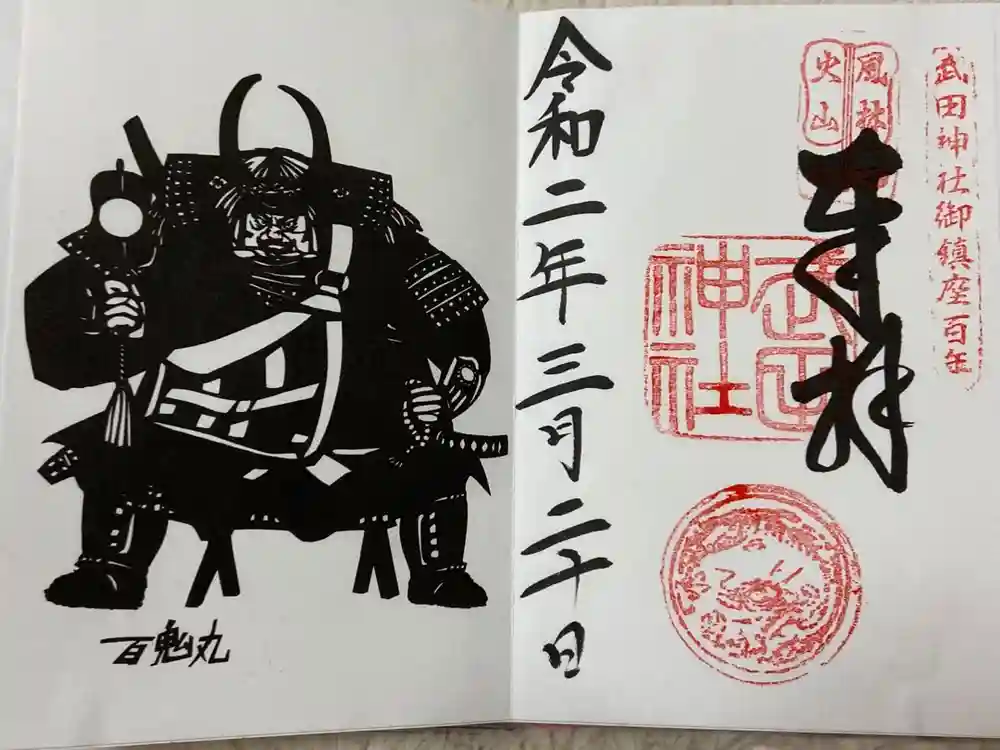 武田神社御鎮座百年
風林
火山
奉拝
武田
神社
令和二年三月二十日
百鬼丸